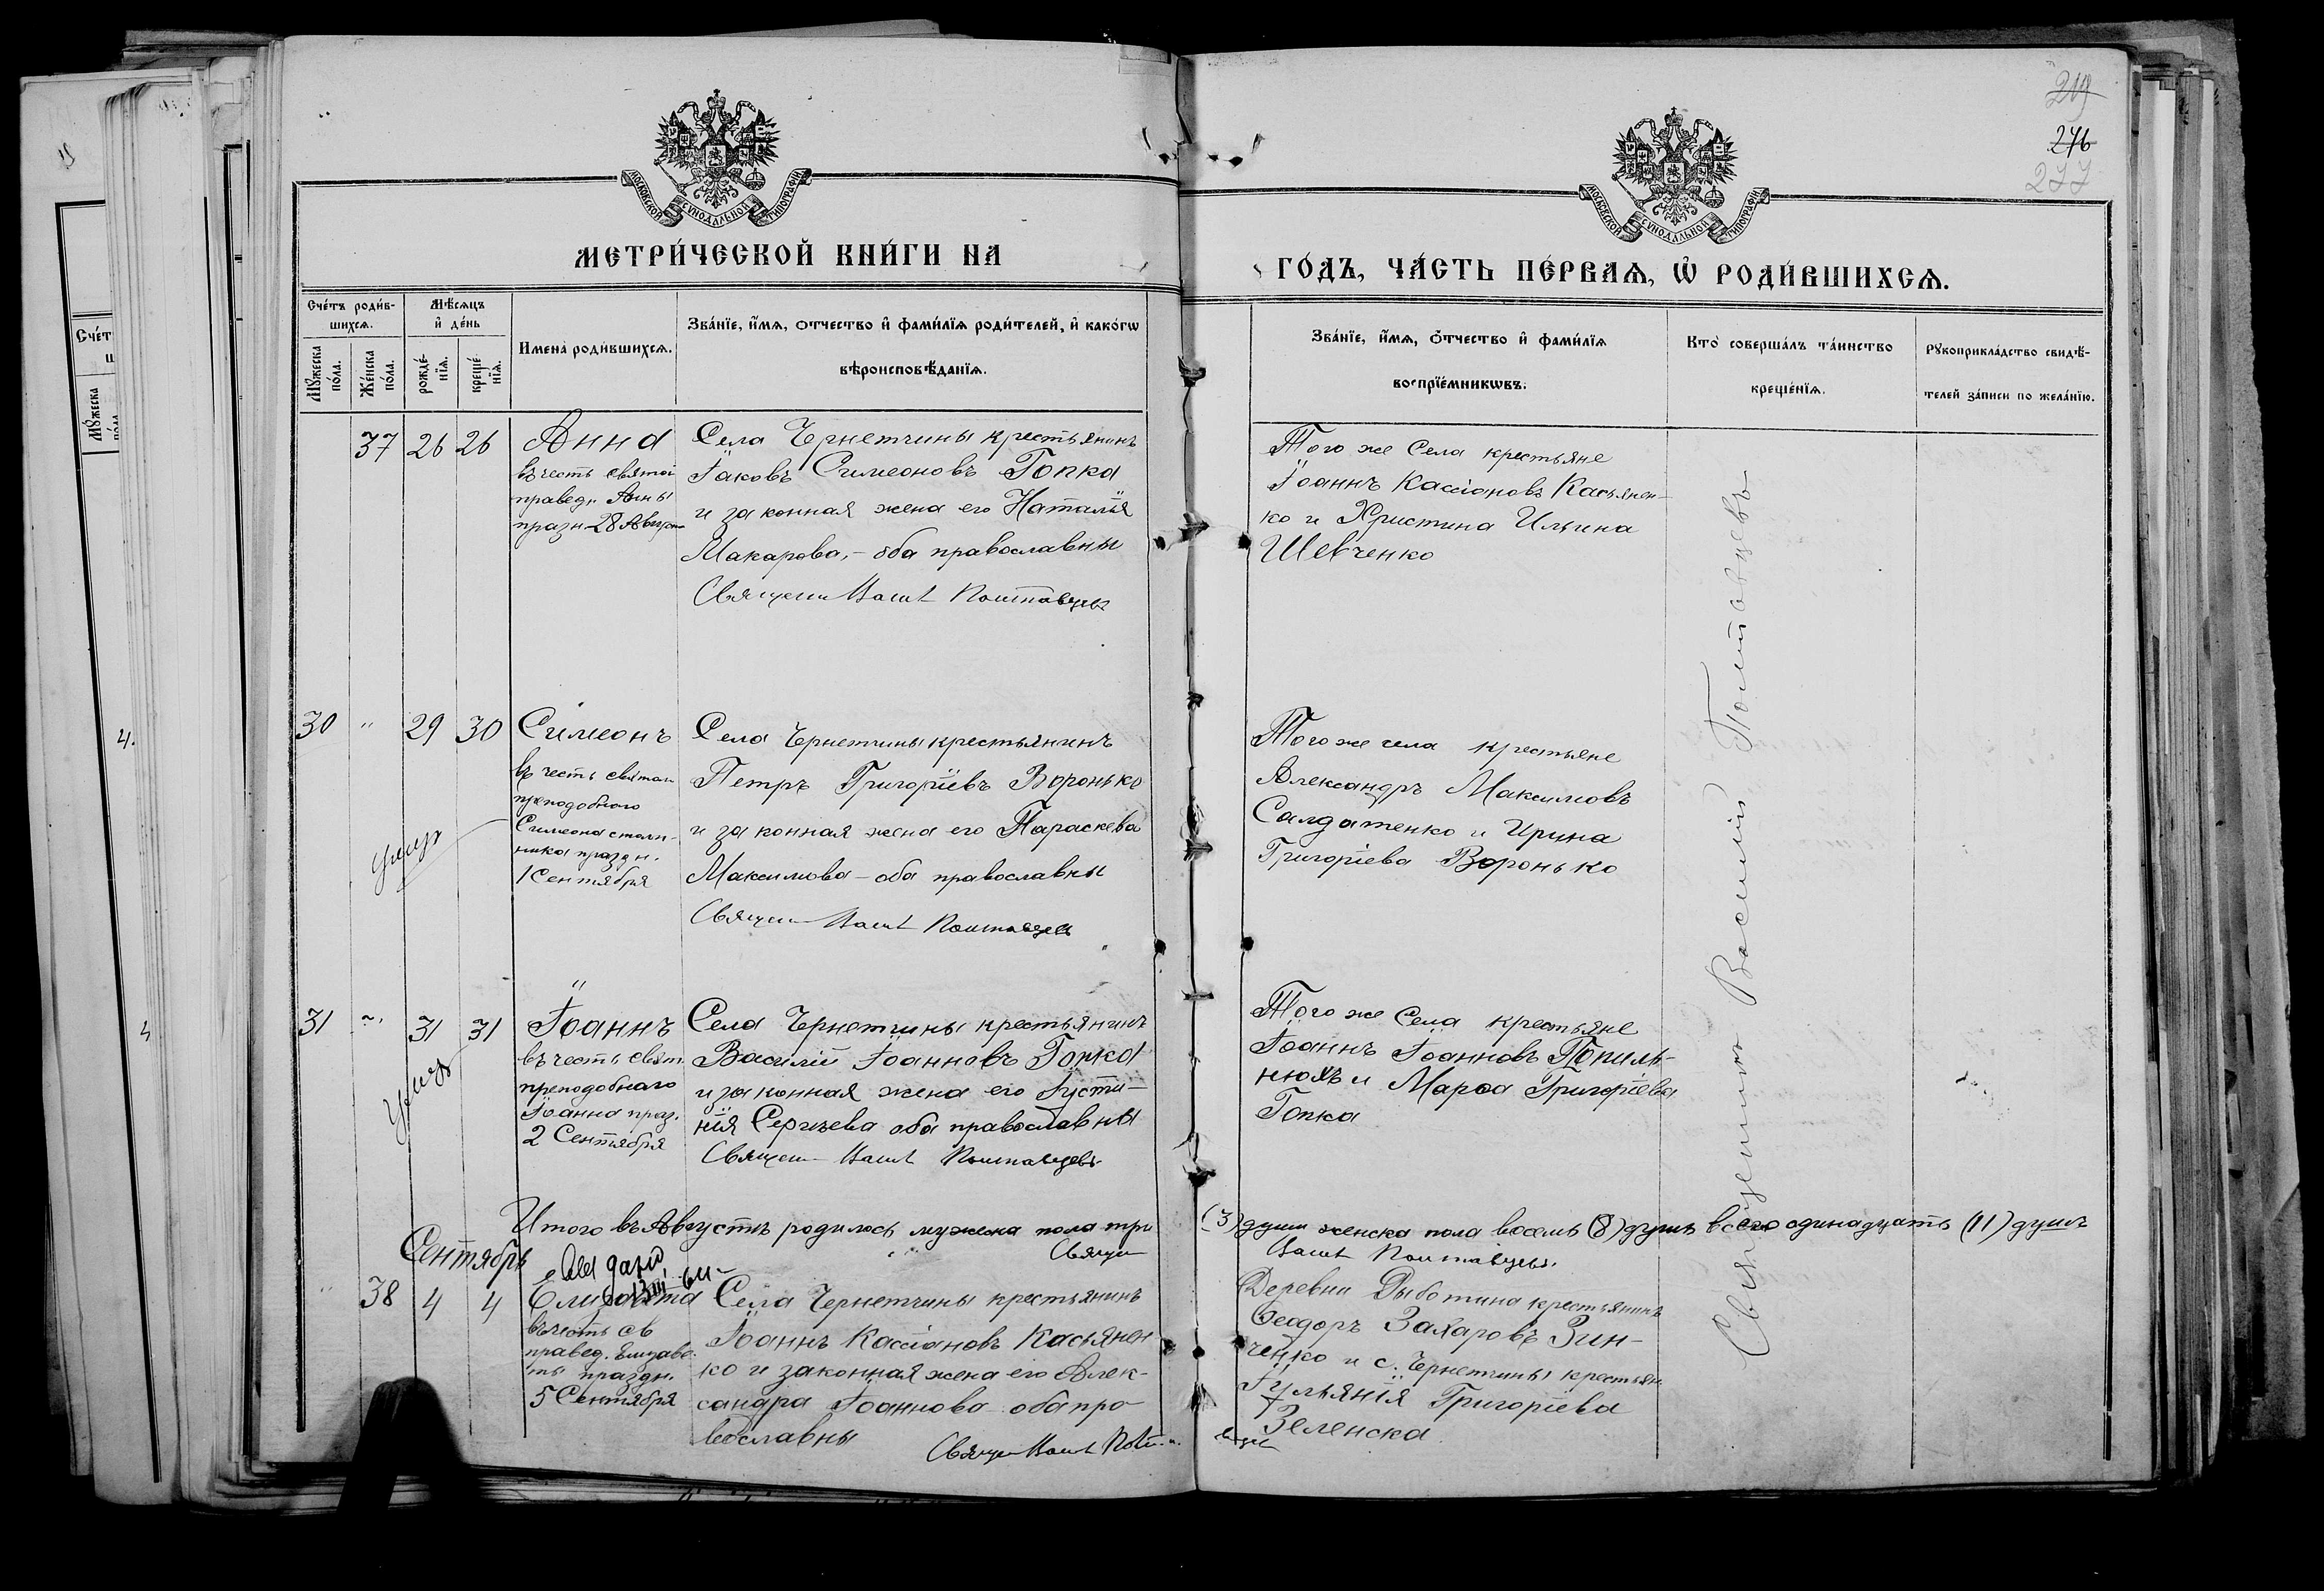 219
276
277
МОСКОВСКОЙ СѴНОДАЛЬНОЙ ТИПОГРАФІИ
МОСКОВСКОЙ СѴНОДАЛЬНОЙ ТИПОГРАФІИ
МЕТРИ́ЧЕСКОЙ КНИ́ГИ НА
ГО́ДЪ, ЧА́СТЬ ПЕ́РВАѦ, Ѡ҆ РОДИ́ВШИХСѦ.
Сче́тъ роди́в-
шихсѧ.
Мѣ́сѧцъ
и҆ де́нь
Мꙋ́жеска
по́ла.
Же́нска
по́ла.
рожде́-
нїѧ.
креще́-
нїѧ.
Имена̀ роди́вшихсѧ.
Зва́нїе, и҆́мѧ, ѻ҆́тчество и҆ фами́лїѧ роди́телей, и҆ како́гѡ
вѣроисповѣ́данїѧ.
Зва́нїе, и҆́мѧ, ѻ҆́тчество и҆ фами́лїѧ
воспрїе́мникѡвъ.
Кто̀ соверша́лъ та́инство
креще́нїѧ.
Рꙋкоприкла́дство свидѣ́-
телей за́писи по жела́нїю.
37 26 26
Анна
въ честь святой
правед. Анны
празн. 28 Август
Села Чернетчины крестьянинъ
Іаковъ Симеоновъ Гопка
и законная жена его Наталія
Макарова, - оба православны
Священ Васил Полтавцев
Того же Села крестьяне
Іоаннъ Кассіановъ Касьянен-
ко и Христина Ильина
Шевченко
30 " 29 30
Симеонъ
въ честь святаго
преподобнаго
Симеона столп-
ника праздн.
1 Сентября
умеръ
Села Чернетчины крестьянинъ
Петръ Григоріевъ Воронько
и законная жена его Параскева
Максимова - оба православны
Священ Васил Полтавцев
Того же села крестьяне
Александръ Максимовъ
Салдатенко и Ирина
Григоріева Воронько
31 " 31 31
Іоаннъ
въ честь свят.
преподобнаго
Іоанна праз.
2 Сентября
умеръ
Села Чернетчины крестьянинъ
Василій Іоанновъ Гопка
и законная жена его Іусти-
нія Сергіева оба православны
Священ Васил Полтавцевъ
Того же Села крестьяне
Іоаннъ Іоанновъ Попиль-
нюхъ и Марѳа Григоріева
Гопка
Священникъ Василій Полтавцевъ
Итого въ Августѣ родилось мужеска пола три
(3) души женска пола восемь (8) душъ всего одинадцать (11) душъ
Священ
Васил Полтавцевъ.
Сентябрь
38 4 4
Елизавета
въ честь св
правед. Елизаве-
ты праздн.
5 Сентября
Села Чернетчины крестьянинъ
Іоаннъ Кассіановъ Касьянен
ко и законная жена его Алек-
сандра Іоаннова оба пра-
вославны
Священ Васил Полт
авцев
Деревни Рыботина крестьянинъ
Ѳеодоръ Захаровъ Зин-
ченко и с. Чернетчины крестьян.
Іульянія Григоріева
Зеленска